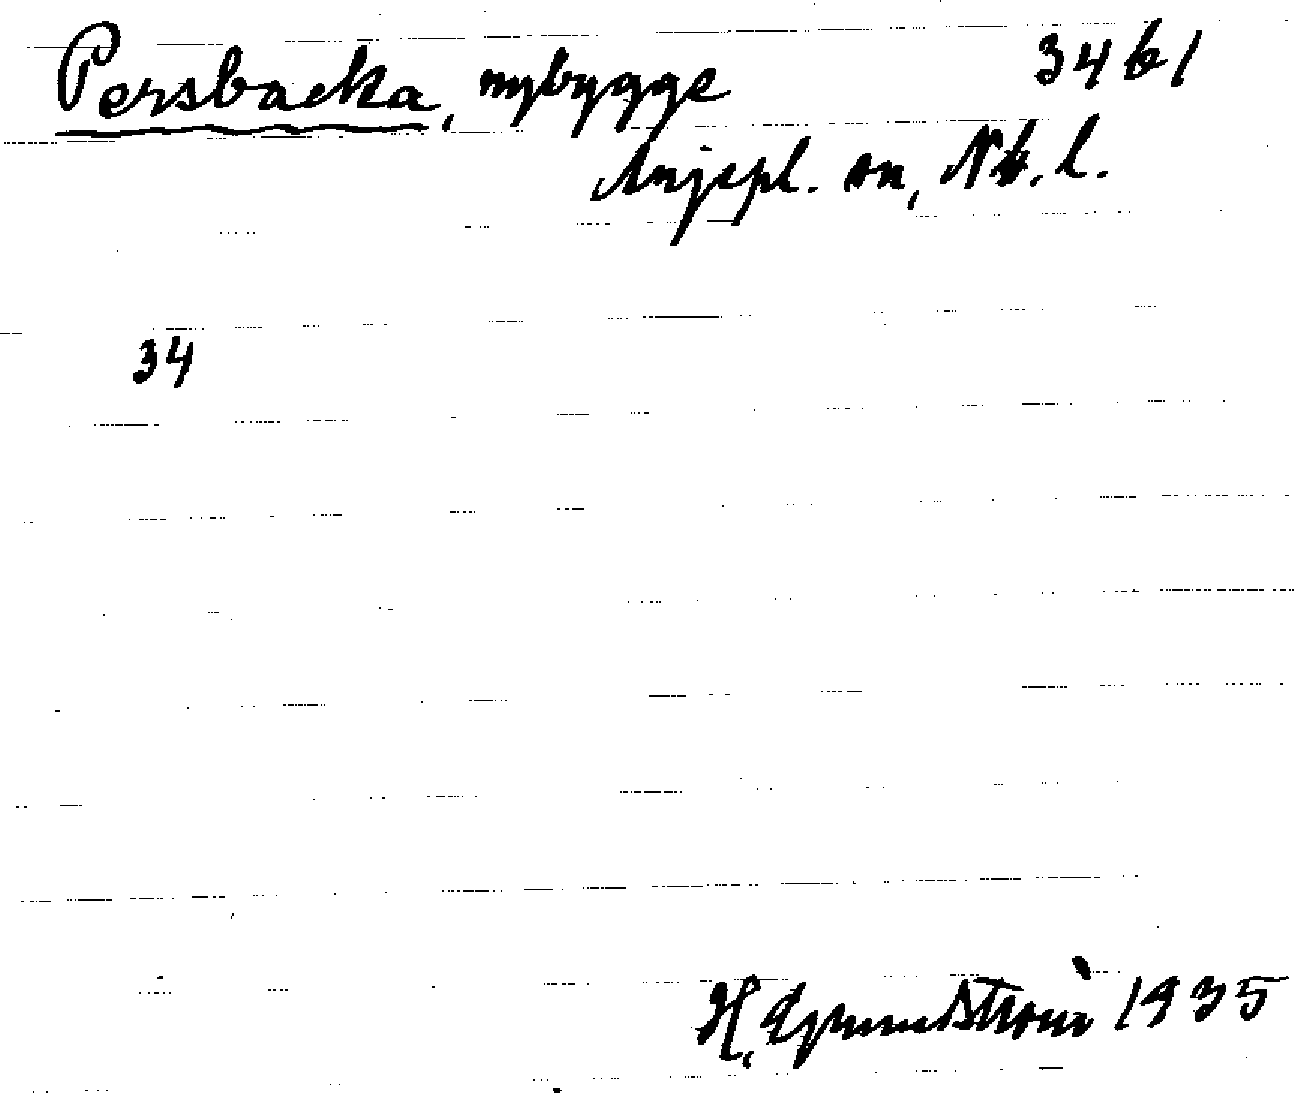 Persbacka, nybygge 34 b 1
Arjepl. sn, Nb. l.
34
H. Grundström 1935